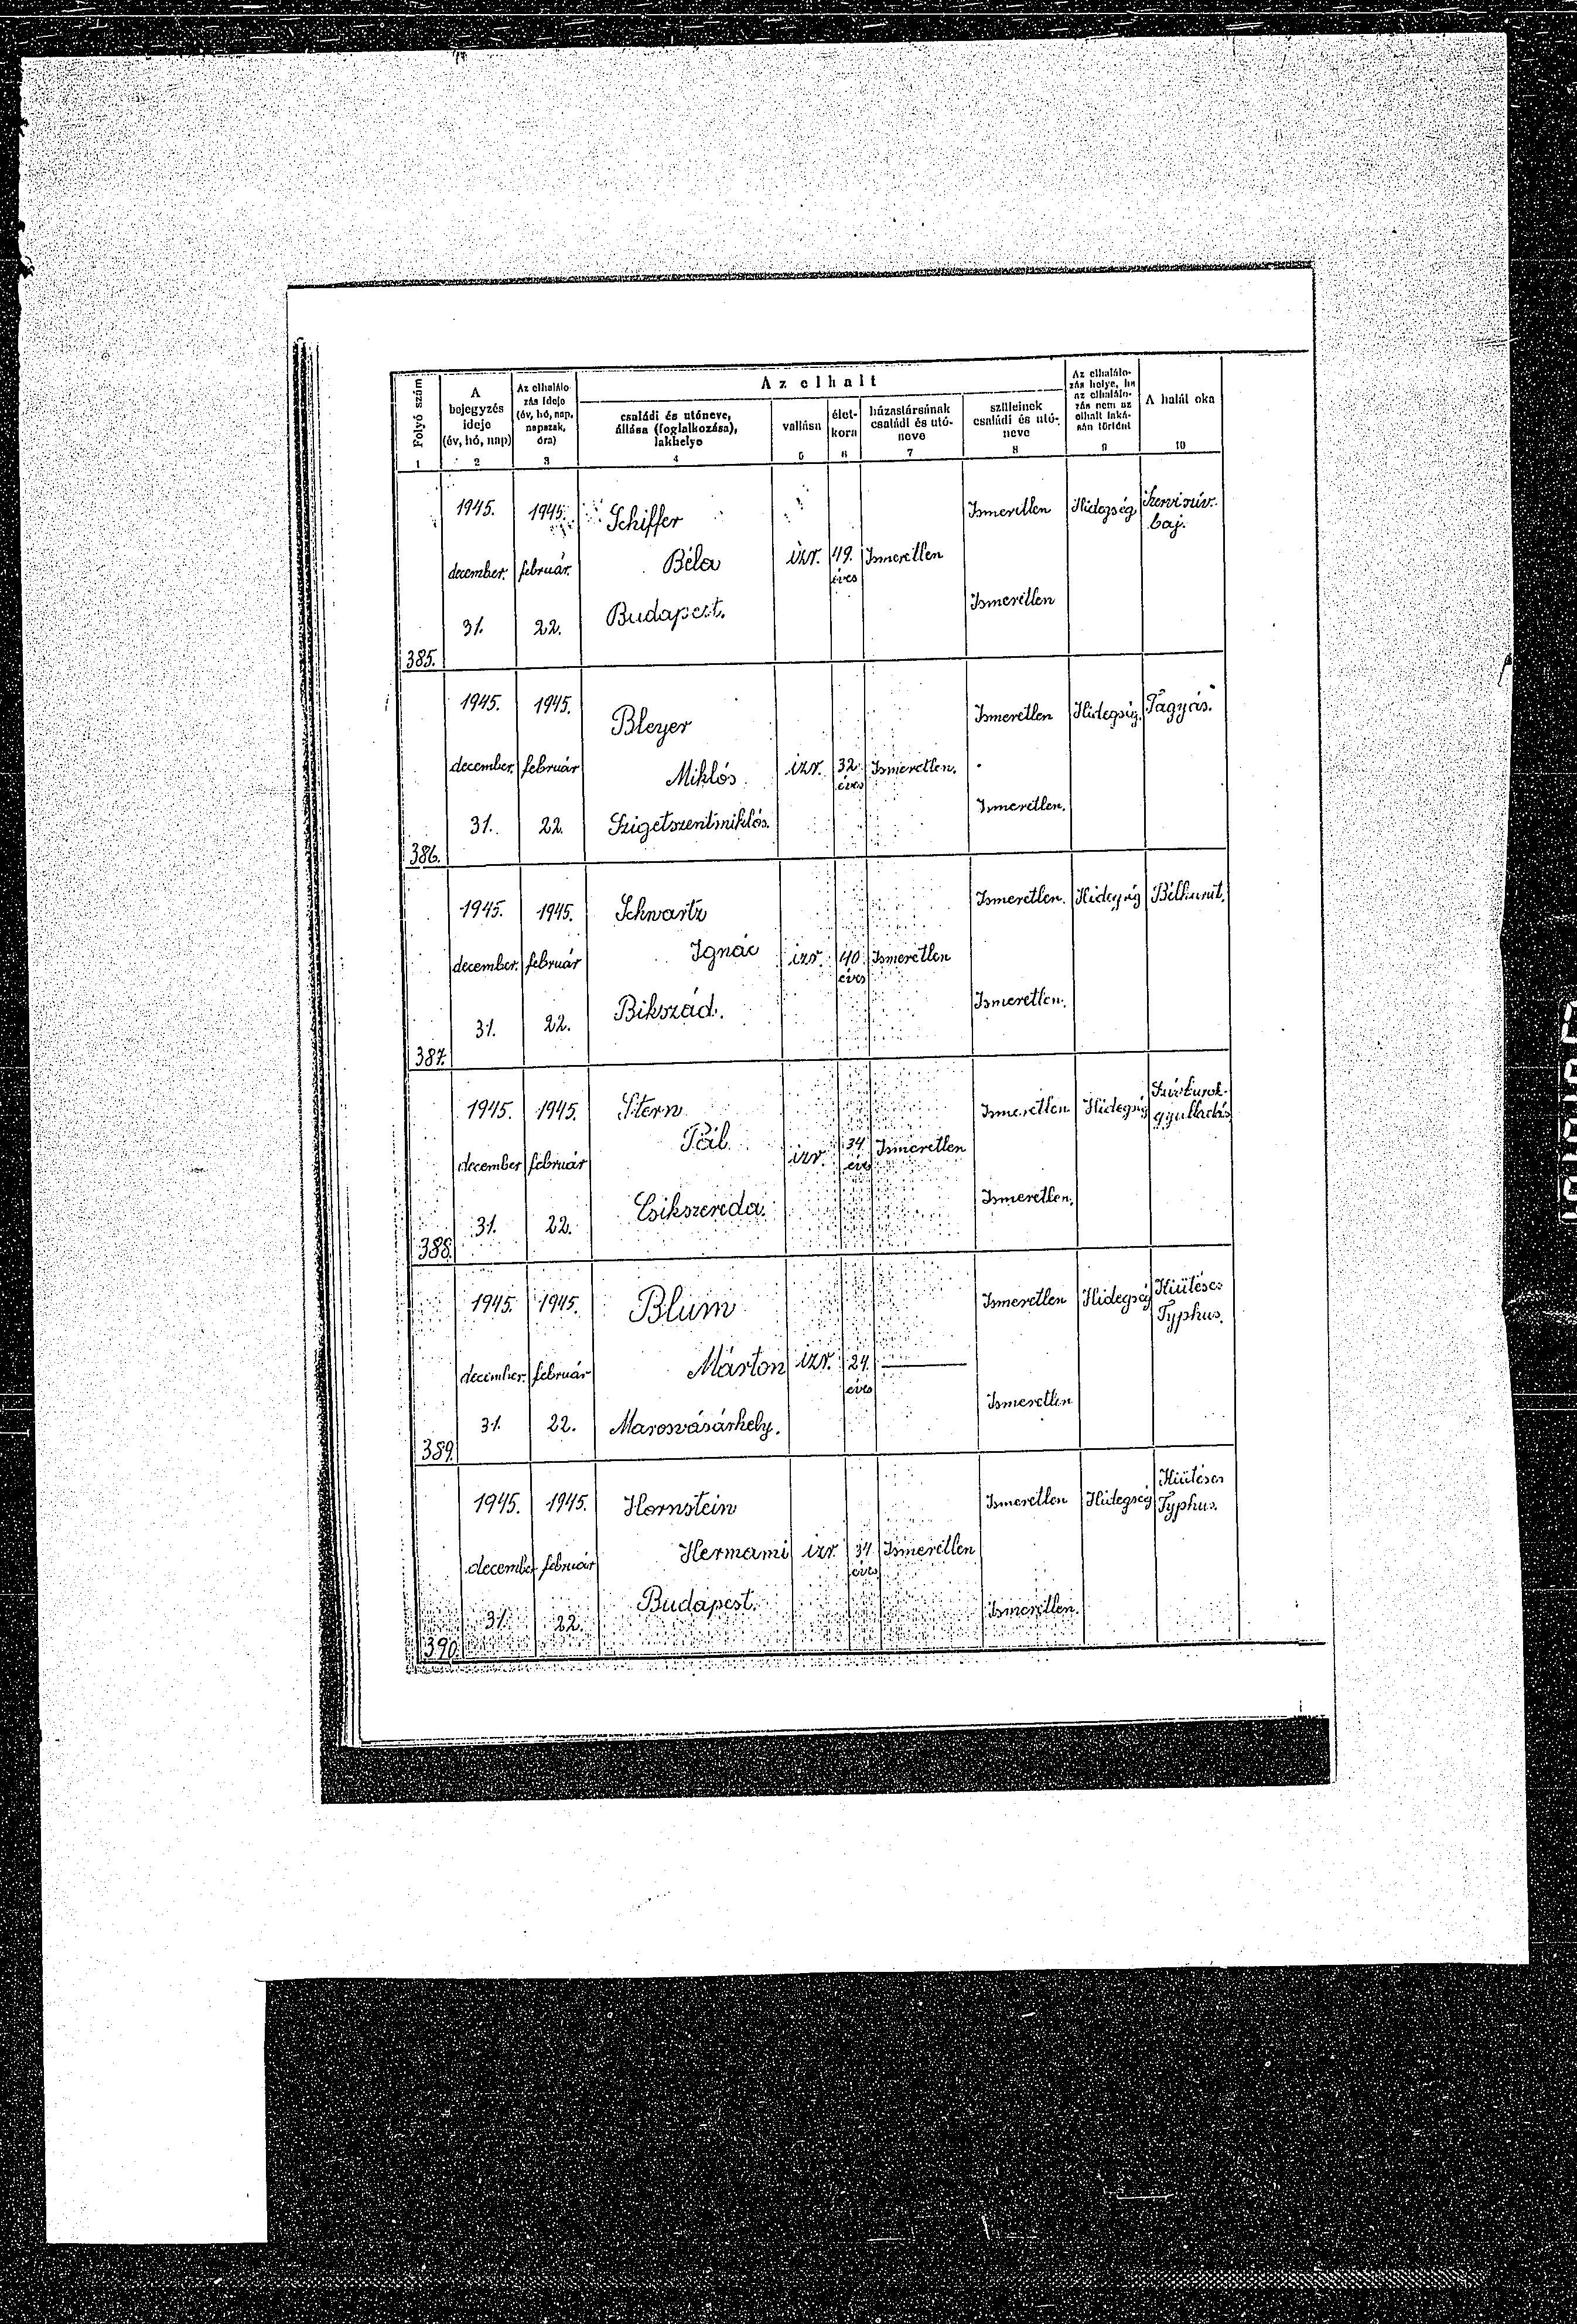 Folyó szám
A bejegyzés ideje (év, hó, nap)
Az elhalálozás ideje (év, hó, nap, napszak, óra)
Az elhalt
családi és utóneve, állása (foglalkozása), lakhelye
vallása
életkora
házastársának családi és utóneve
szüleinek családi és utóneve
Az elhalálozás helye, ha az elhalálozás nem az elhalt lakásán történt
A halál oka
1 2 3 4 5 6 7 8 9 10
1945. 1945. Schiffer Ismeretlen Hidegség Szervi szívbaj.
december. február. Béla izr. 49. éves Ismeretlen
Ismeretlen
31. 22. Budapest.
385.
1945. 1945. Bleyer Ismeretlen Hidegség. Fagyás.
december. február Miklós. izr. 32 éves Ismeretlen.
Ismeretlen.
31. 22. Szigetszentmiklós.
386.
1945. 1945. Schwartz Ismeretlen. Hidegség Bélhurut.
december. február Ignác izr. 40 éves Ismeretlen
Ismeretlen.
31. 22. Bikszád.
387.
1945. 1945. Stern Ismeretlen Hidegség gyulladás
december február Pál izr. 34 éves Ismeretlen
Ismeretlen.
31. 22. Csikszereda.
388.
1945. 1945. Blum Ismeretlen Hidegség Kiütéses Typhus.
december. február Márton izr. 24. éves
Ismeretlen
31. 22. Marosvásárhely.
389.
1945. 1945. Hornstein Ismeretlen Hidegség Kiütéses Typhus.
december február Hermami izr. 34. éves Ismeretlen
31. 22. Budapest. Ismeretlen.
390.